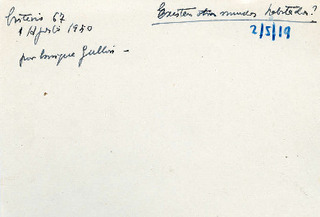 Criterio 67
1 Agosto 1930
por Enrique Gullini -
Existen otros mundos habitados?
2/5/19